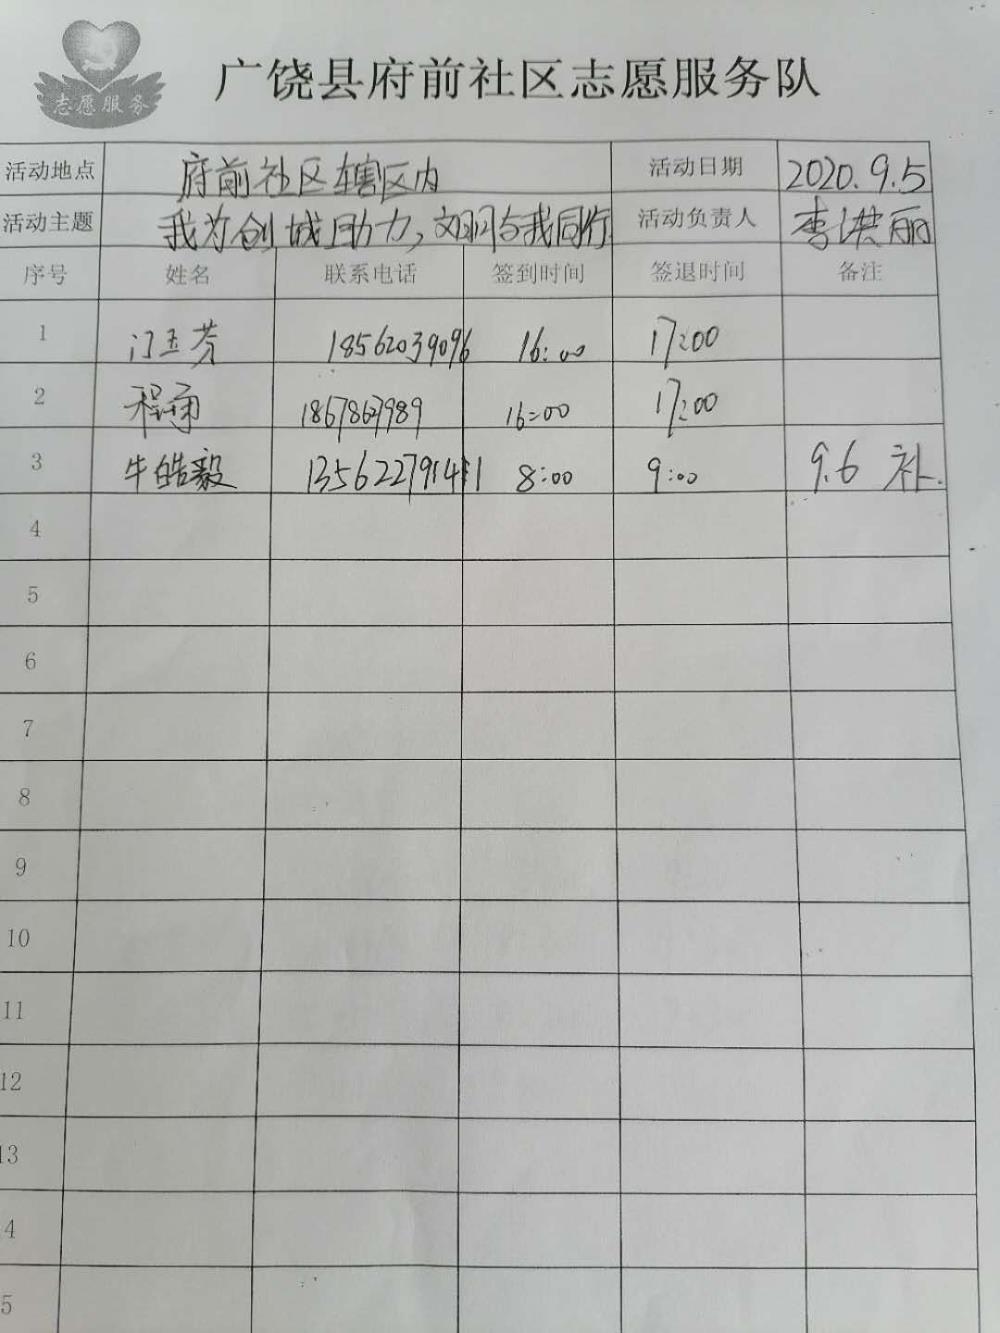 志愿服务
广饶县府前社区志愿服务队
活动地点 府前社区辖区内 活动日期 2020.9.5
活动主题 我为创城助力，文明与我同行 活动负责人 李洪丽
序号 姓名 联系电话 签到时间 签退时间 备注
1 门玉芳 18562039096 16:00 17:00
2 程 16:00 17:00
3 牛皓毅 8:00 9:00 9.6 补.
4
5
6
7
8
9
10
11
12
13
4
5